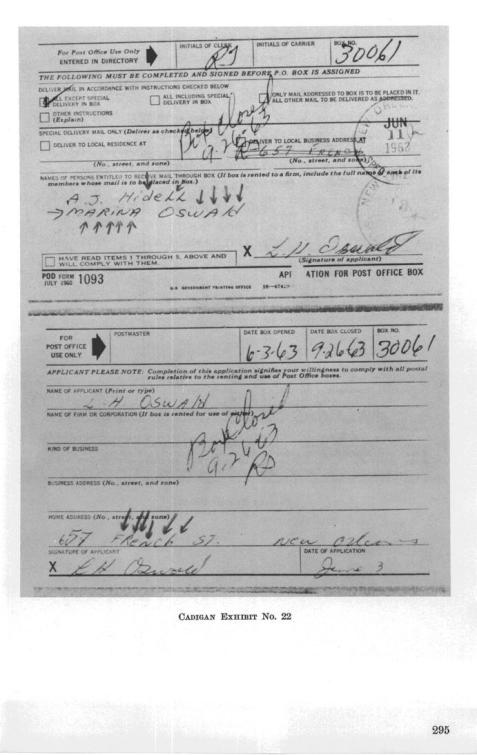 For Post Office Use Only
ENTERED IN DIRECTORY
INITIALS OF CLERK
INITIALS OF CARRIER
BOX NO.
30061
THE FOLLOWING MUST BE COMPLETED AND SIGNED BEFORE P.O. BOX IS ASSIGNED
DELIVER MAIL IN ACCORDANCE WITH INSTRUCTIONS CHECKED BELOW
ALL EXCEPT SPECIAL DELIVERY IN BOX
ALL INCLUDING SPECIAL DELIVERY IN BOX
ONLY MAIL ADDRESSED TO BOX IS TO BE PLACED IN IT. ALL OTHER MAIL TO BE DELIVERED AS ADDRESSED.
OTHER INSTRUCTIONS (Explain)
Box Closed
9-26-63
JUN
11
1963
NEW
SPECIAL DELIVERY MAIL ONLY (Deliver as checked below)
DELIVER TO LOCAL RESIDENCE AT
DELIVER TO LOCAL BUSINESS ADDRESS AT
657 FRENCH
(No., street, and zone)
(No., street, and zone)
NAMES OF PERSONS ENTITLED TO RECEIVE MAIL THROUGH BOX (If box is rented to a firm, include the full name of each of its
members whose mail is to be placed in box.)
A.J. Hidell
MARINA OSWALD
HAVE READ ITEMS 1 THROUGH 5, ABOVE AND
WILL COMPLY WITH THEM.
X L H Oswald
(Signature of applicant)
POD FORM 1093
JULY 1960
U.S. GOVERNMENT PRINTING OFFICE
API ATION FOR POST OFFICE BOX
FOR
POST OFFICE
USE ONLY
POSTMASTER
DATE BOX OPENED
6-3-63
DATE BOX CLOSED
9-26-63
BOX NO.
30061
APPLICANT PLEASE NOTE: Completion of this application signifies your willingness to comply with all postal
rules relative to the renting and use of Post Office boxes.
NAME OF APPLICANT (Print or type)
L H OSWALD
NAME OF FIRM OR CORPORATION (If box is rented for use of either)
Box Closed
9-26-63
KIND OF BUSINESS
BUSINESS ADDRESS (No., street, and zone)
HOME ADDRESS (No., street, and zone)
657 FRENCH ST. New Orleans
SIGNATURE OF APPLICANT
DATE OF APPLICATION
X L H Oswald
June 3
CADIGAN EXHIBIT No. 22
295